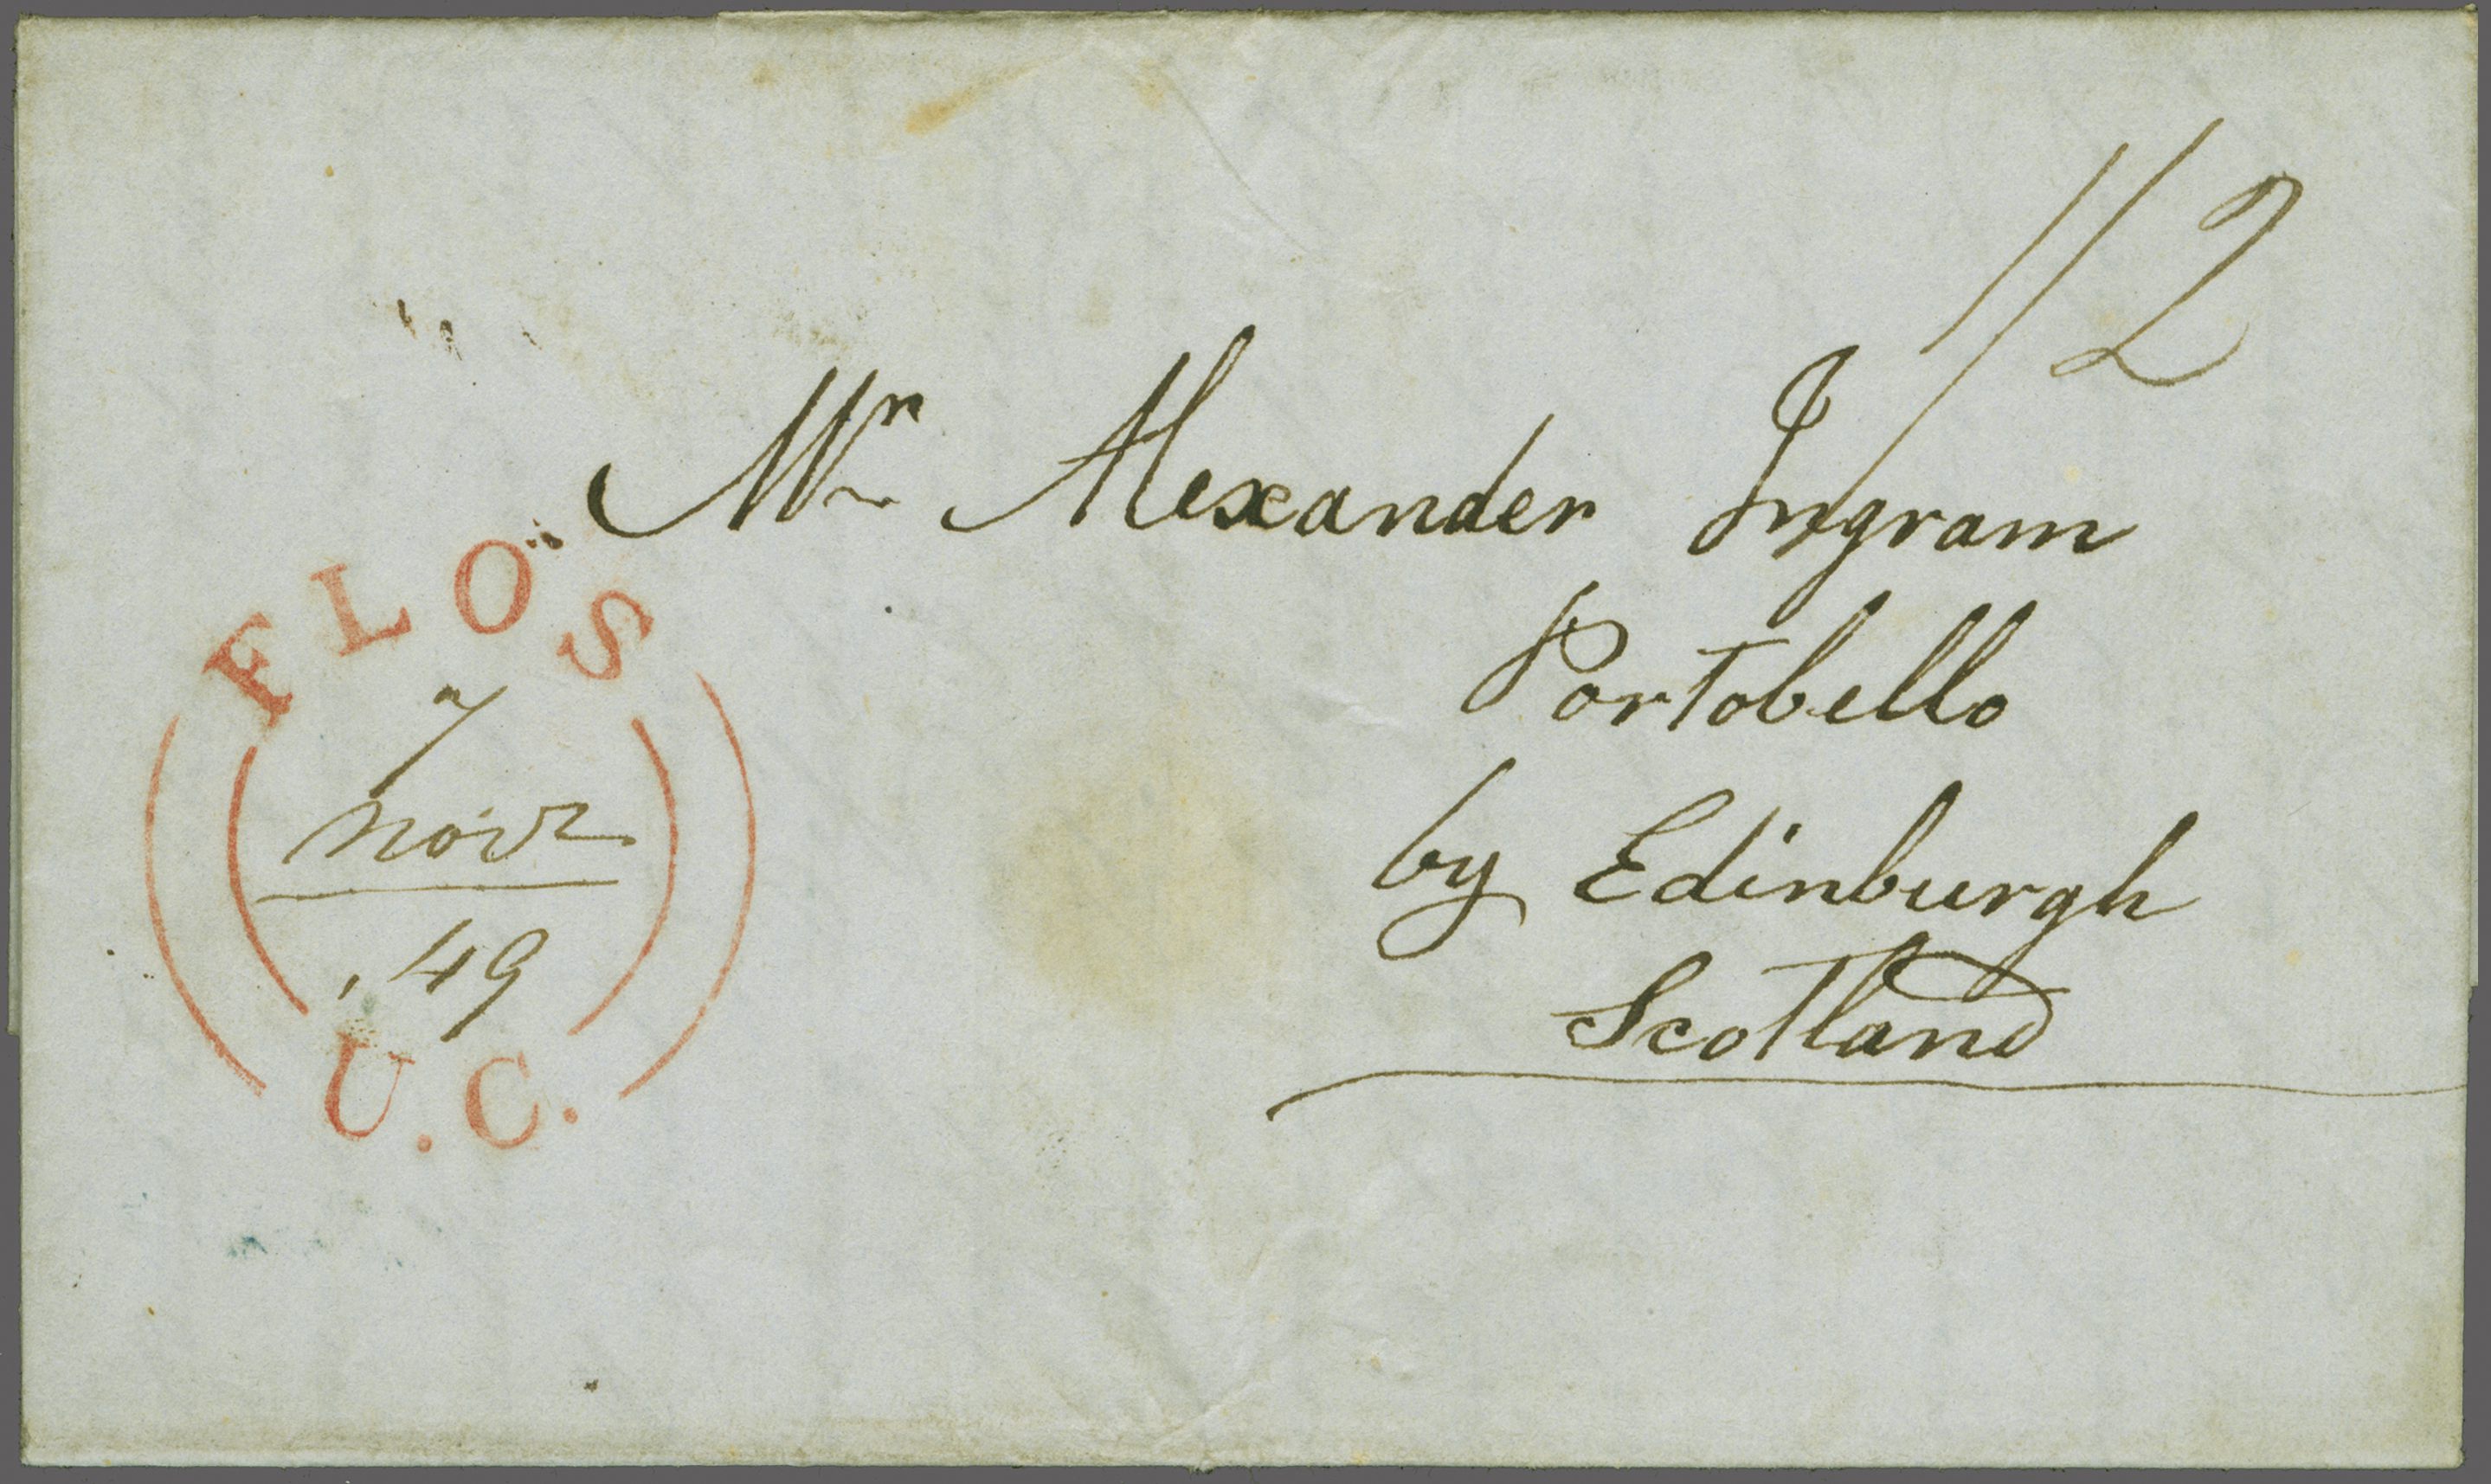 1/2
Mr Alexander Ingram
Portobello
by Edinburgh
Scotland
FLOS
7
Novr
49
U.C.